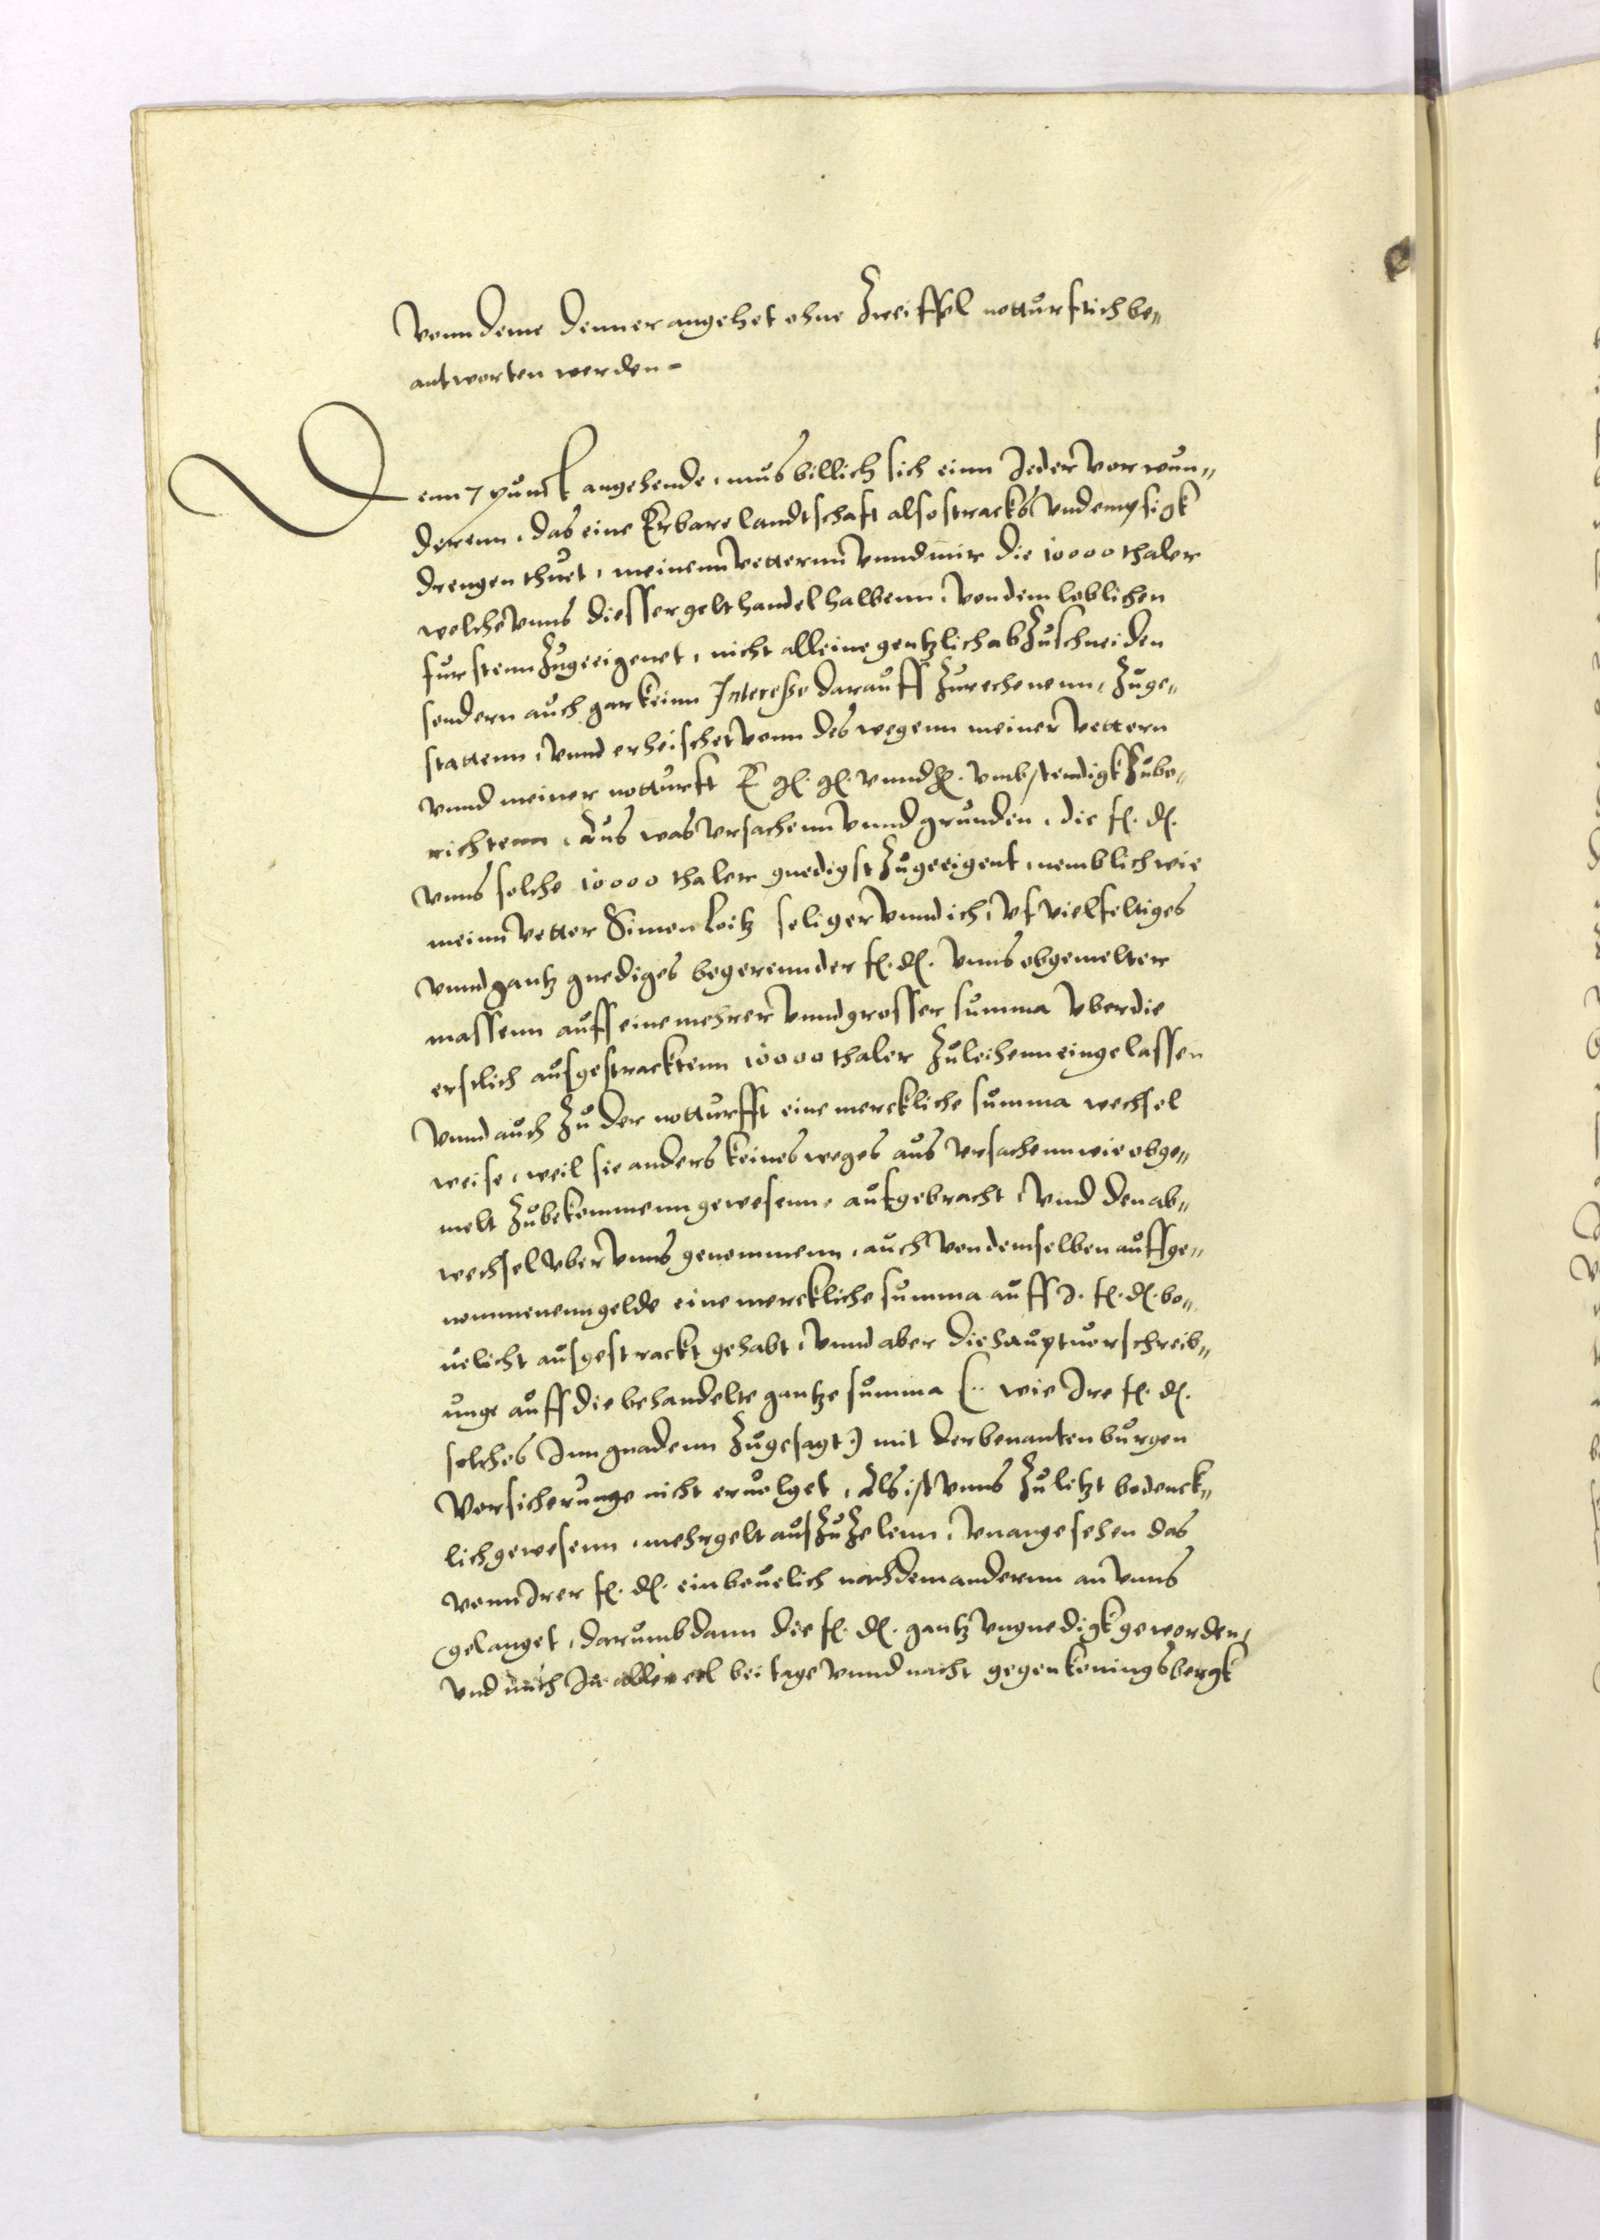 vonn deme denner angehet ohne Zweiffel notturfftich be„
antworten werden -
Denn 7 punct angehende, mus billich sich einn Jeder vorwun„
derenn, das eine Erbare landtschaft also stracks vnd empsigk
drengen thuet, meinenn vetternn vnnd mir die 10000 thaler
welche vnns diesser gelthandel halbenn, von dem loblichen
furstenn Zugeeigenet, nicht alleine gentzlich abZuschneiden
sondern auch gar keinn Interesse darauff Zurechenenn, Zuge„
stattenn, vnnd erheischet vonn deswegenn meiner vettern
vnnd meiner notturft E. g. g. vnnd g. vmbstendigk Zube„
richtenn, Aus was vrsachenn vnnd grunden, die f. d.
vnns solche 10000 thaler gnedigst Zugeeigent, nemblich wie
meinn vetter Simon Loitz seliger vnnd ich, vf vielfeltiges
vnnd gantz gnediges begerenn der f. d. vnns obgemelter
massenn auff eine mehrer vnnd grosser summa vber die
erstlich ausgestracktenn 10000 thaler Zuleihenn eingelassen
vnnd auch Zu der notturfft eine merckliche summa wechsel
weise, weil sie anders keines weges aus vrsachenn wie obge„
melt Zubekommenn gewesenn, aufgebracht, vnnd den ab„
wechsel vber vnns genommenn, auch von demselben auffge„
nommenenn gelde eine merckliche summa auff J. f. d. be„
uelicht ausgestrackt gehabt, vnnd aber die hauptuorschreib„
unge auff die behandelte gantze summa (: wie Ire f. d.
solches Inn gnadenn Zugesagt:) mit der benanten burgen
vorsicherunge nicht eruolget, Als ist vnns Zuletzt bedenck„
lich gewesenn, mehr gelt ausZuZelenn, vnangesehen das
vonn Irer f. d. ein beuelich nach dem andernn an vnns
gelanget, darumb dann die f. d. gantz vngnedigk geworden,
vnd mich In aller eel bei tage vnnd nacht gegen koningsbergk